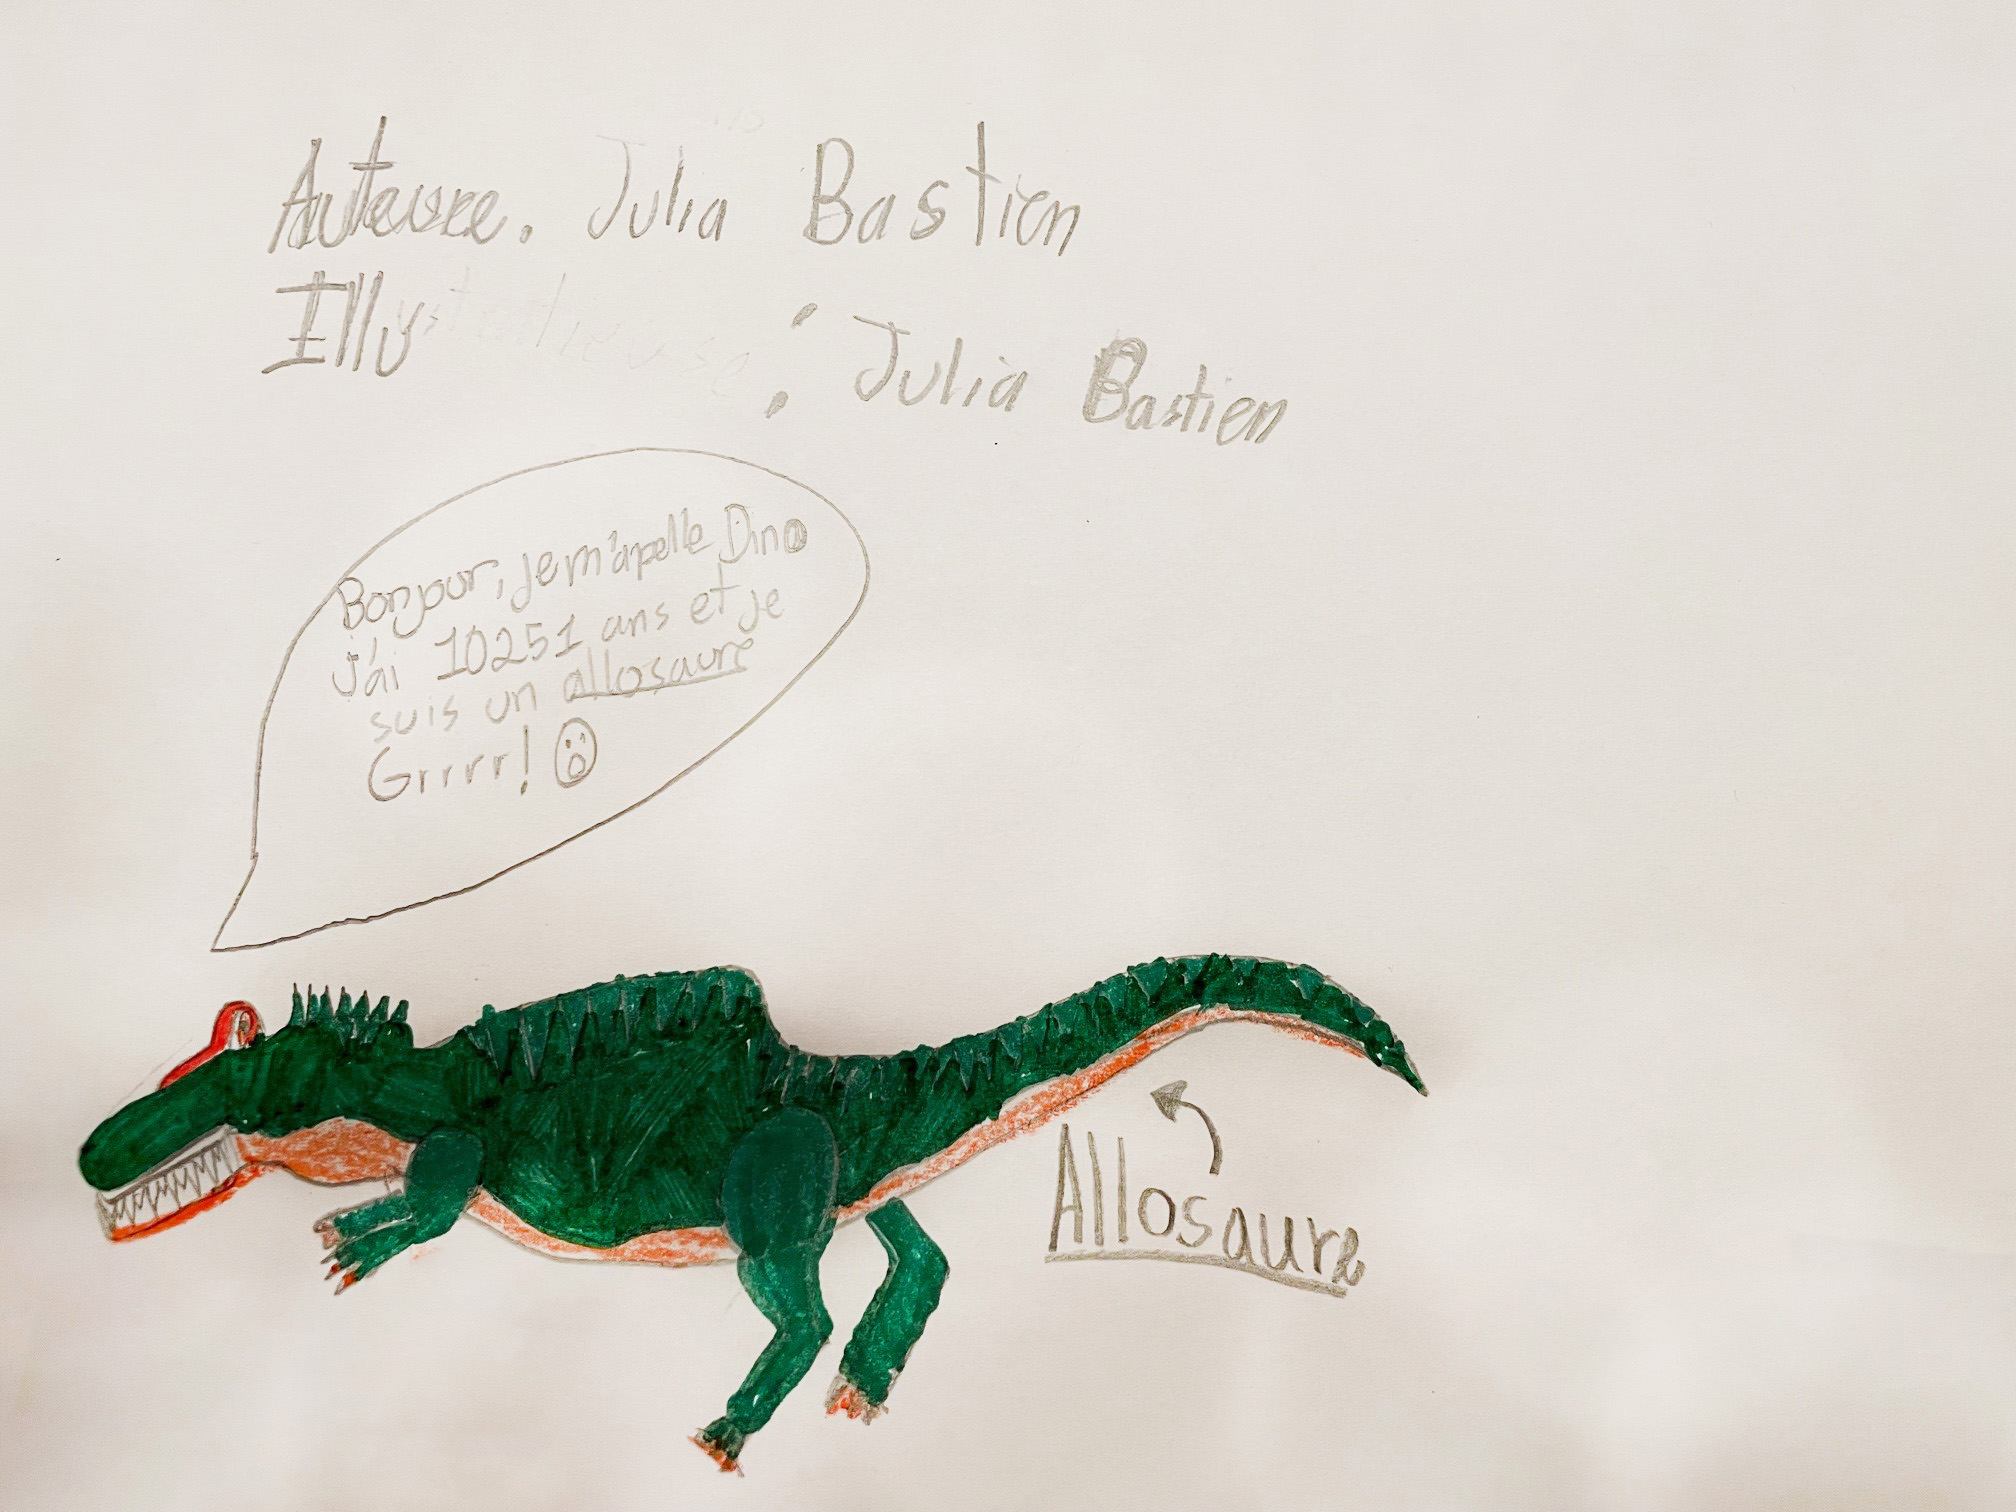 Auteure. Julia Bastien
Illustratieuse : Julia Bastien
Bonjour, je m'apelle Dino
j'ai 10251 ans et je
suis un allosaure
Grrrr!
Allosaure